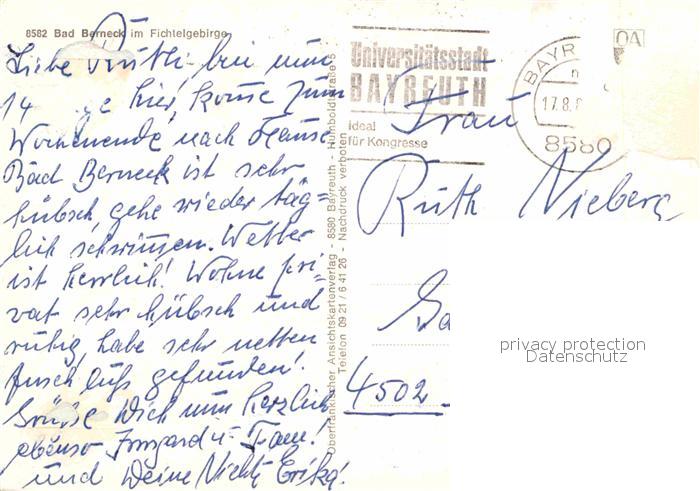 8582 Bad Berneck im Fichtelgebirge
Liebe Ruth! bin nun
14 ge hier, komme zum
Wochenende nach Hause
Bad Berneck ist sehr
hübsch, gehe wieder täg=
lich schwimmen. Wetter
ist herrlich! Wohne pri=
vat sehr hübsch und
ruhig, habe sehr netten
Anschluß gefunden!
Grüsse Dich nun herzlich
ebenso Irmgard u. Fam.!
und Deine Nichte Erika!
Oberfränkischer Ansichtskartenverlag - 8580 Bayreuth - Humboldtstraße 5
Telefon 09 21 / 6 41 26 - Nachdruck verboten
Universitätsstadt
BAYREUTH
Ideal
für Kongresse
BAYR
17.8.
8580
Frau
Ruth Nieberg
4502
privacy protection
Datenschutz